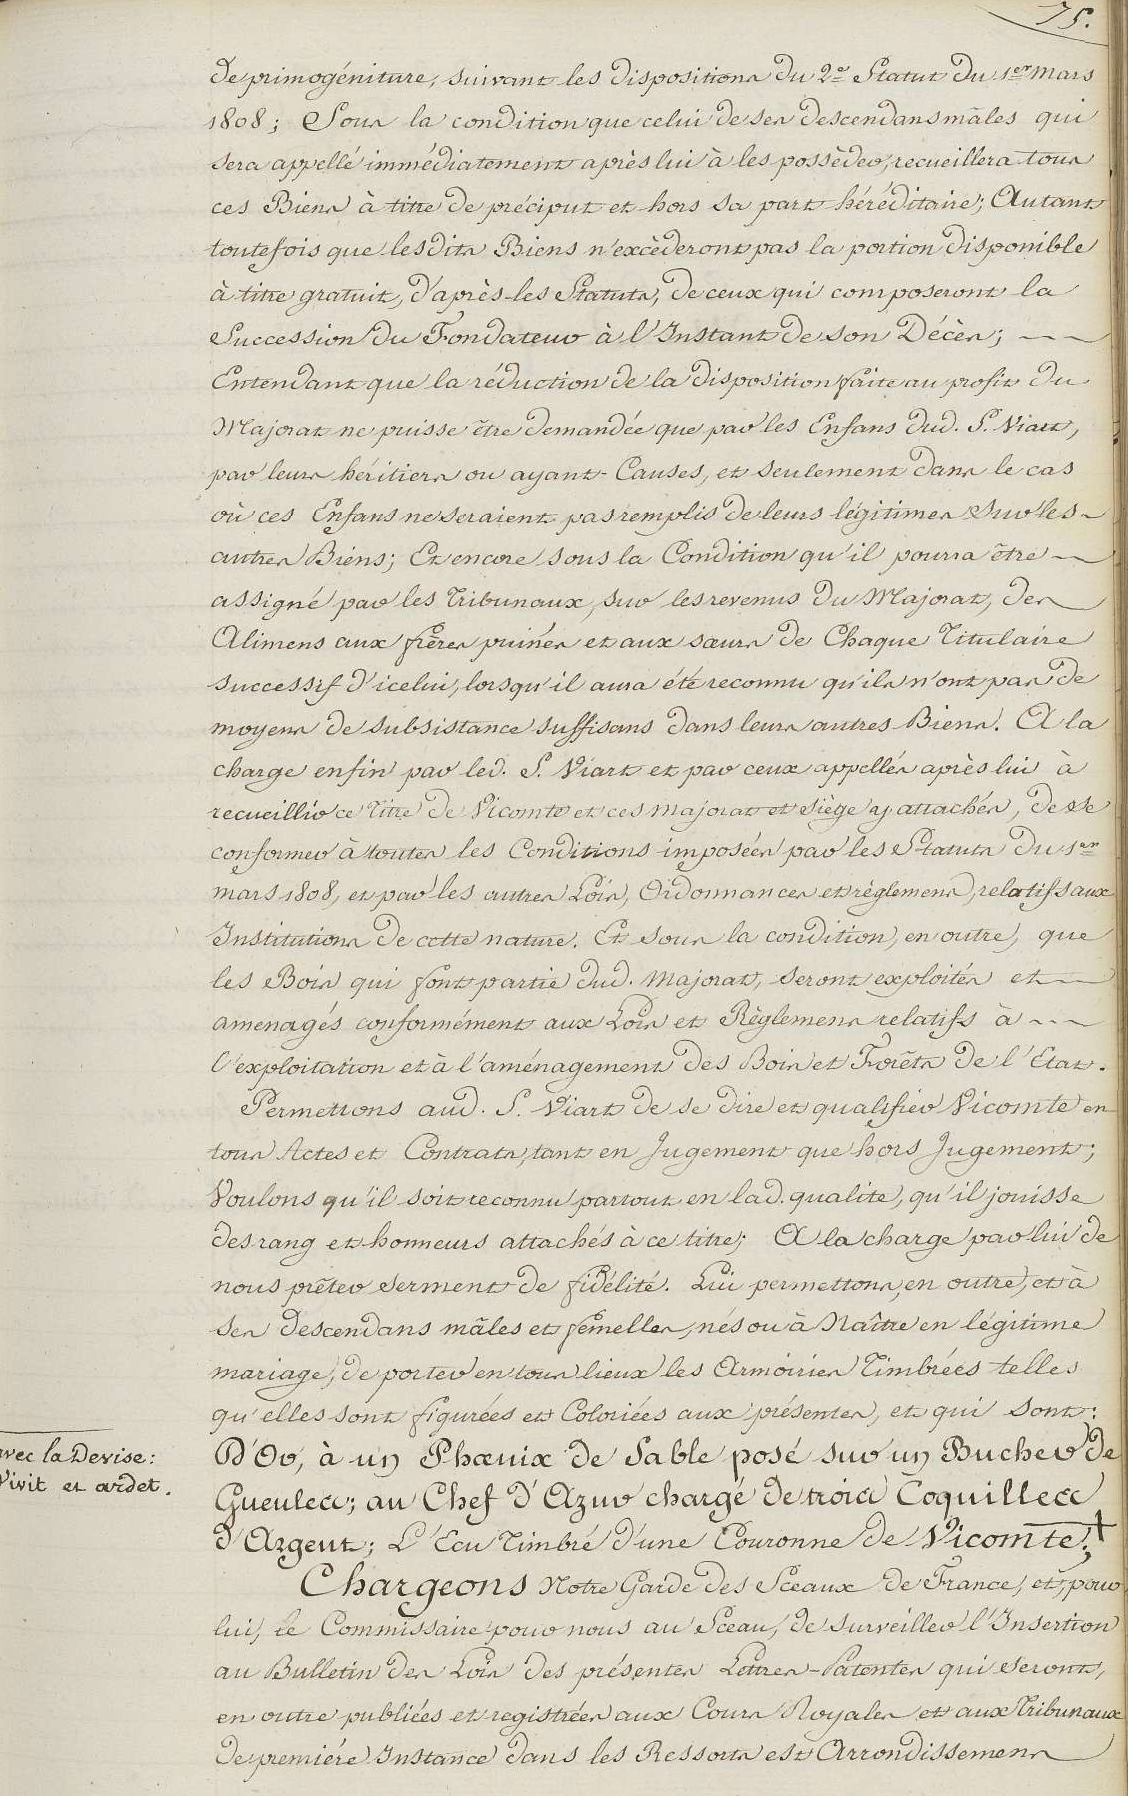 75.
de primogéniture, suivant les dispositions du 2e Statut du 1er mars
1808; Sous la condition que celui de ses descendans mâles qui
sera appellé immédiatement après lui à les posséder, recueillera tous
ces Biens à titre de préciput et hors sa part héréditaire; Autant
toutefois que lesdits Biens n'excèderont pas la portion disponible
à titre gratuit, d'après les Statuts, de ceux qui composeront la
Succession du Fondateur à l'Instant de son Décès; ---
Entendant que la réduction de la disposition faite au profit du
Majorat ne puisse être demandée que par les Enfans dud. S. Viart,
par leurs héritiers ou ayant-Causes, et seulement dans le cas
où ces Enfans ne seraient pas remplis de leurs légitimes sur les
autres Biens; Et encore sous la Condition qu'il pourra être
assigné par les Tribunaux, sur les revenus du Majorat, des
Alimens aux frères puinés et aux sœurs de Chaque Titulaire
successif d'icelui, lorsqu'il aura été reconnu qu'ils n'ont pas de
moyens de subsistance suffisans dans leurs autres Biens. A la
charge enfin par led. S. Viart et par ceux appellés après lui à
recueillir ce Titre de Vicomte et ces majorat et siège y attachés, de se
conformer à toutes les Conditions imposées par les Statuts du 1er
mars 1808, et par les autres Lois, Ordonnances et règlemens, relatifs aux
Institutions de cette nature. Et sous la condition, en outre, que
les Bois qui font partie dud. Majorat, seront exploités et
amenagés conformément aux Lois et Règlemens relatifs à ---
l'exploitation et à l'aménagement des Bois et Forêts de l'Etat.
Permettons aud. S. Viart de se dire et qualifier Vicomte en
tous Actes et Contrats, tant en Jugement que hors Jugement;
Voulons qu'il soit reconnu partout en lad. qualité, qu'il jouisse
des rang et honneurs attachés à ce titre; A la charge par lui de
nous prêter serment de fidélité. Lui permettons, en outre, et à
ses descendans mâles et femelles, nés ou à Naître en légitime
mariage, de porter en tous lieux les Armoiries Timbrées telles
qu'elles sont figurées et Coloriées aux présentes, et qui sont:
D'Or, à un Phœnix de Sable posé sur un Bucher de
Gueules; au Chef d'Azur chargé de trois Coquilles
d'Argent; L'Ecu Timbré d'une Couronne de Vicomte;†
avec la Devise:
Vivit et ardet.
Chargeons Notre Garde des Sceaux de France, et, pour
lui, le Commissaire pour nous au Sceau, de surveiller l'Insertion
au Bulletin des Lois des présentes Lettres-Patentes qui seront,
en outre publiées et registrées aux Cours Royales et aux Tribunaux
de première Instance dans les Ressorts est Arrondissemens